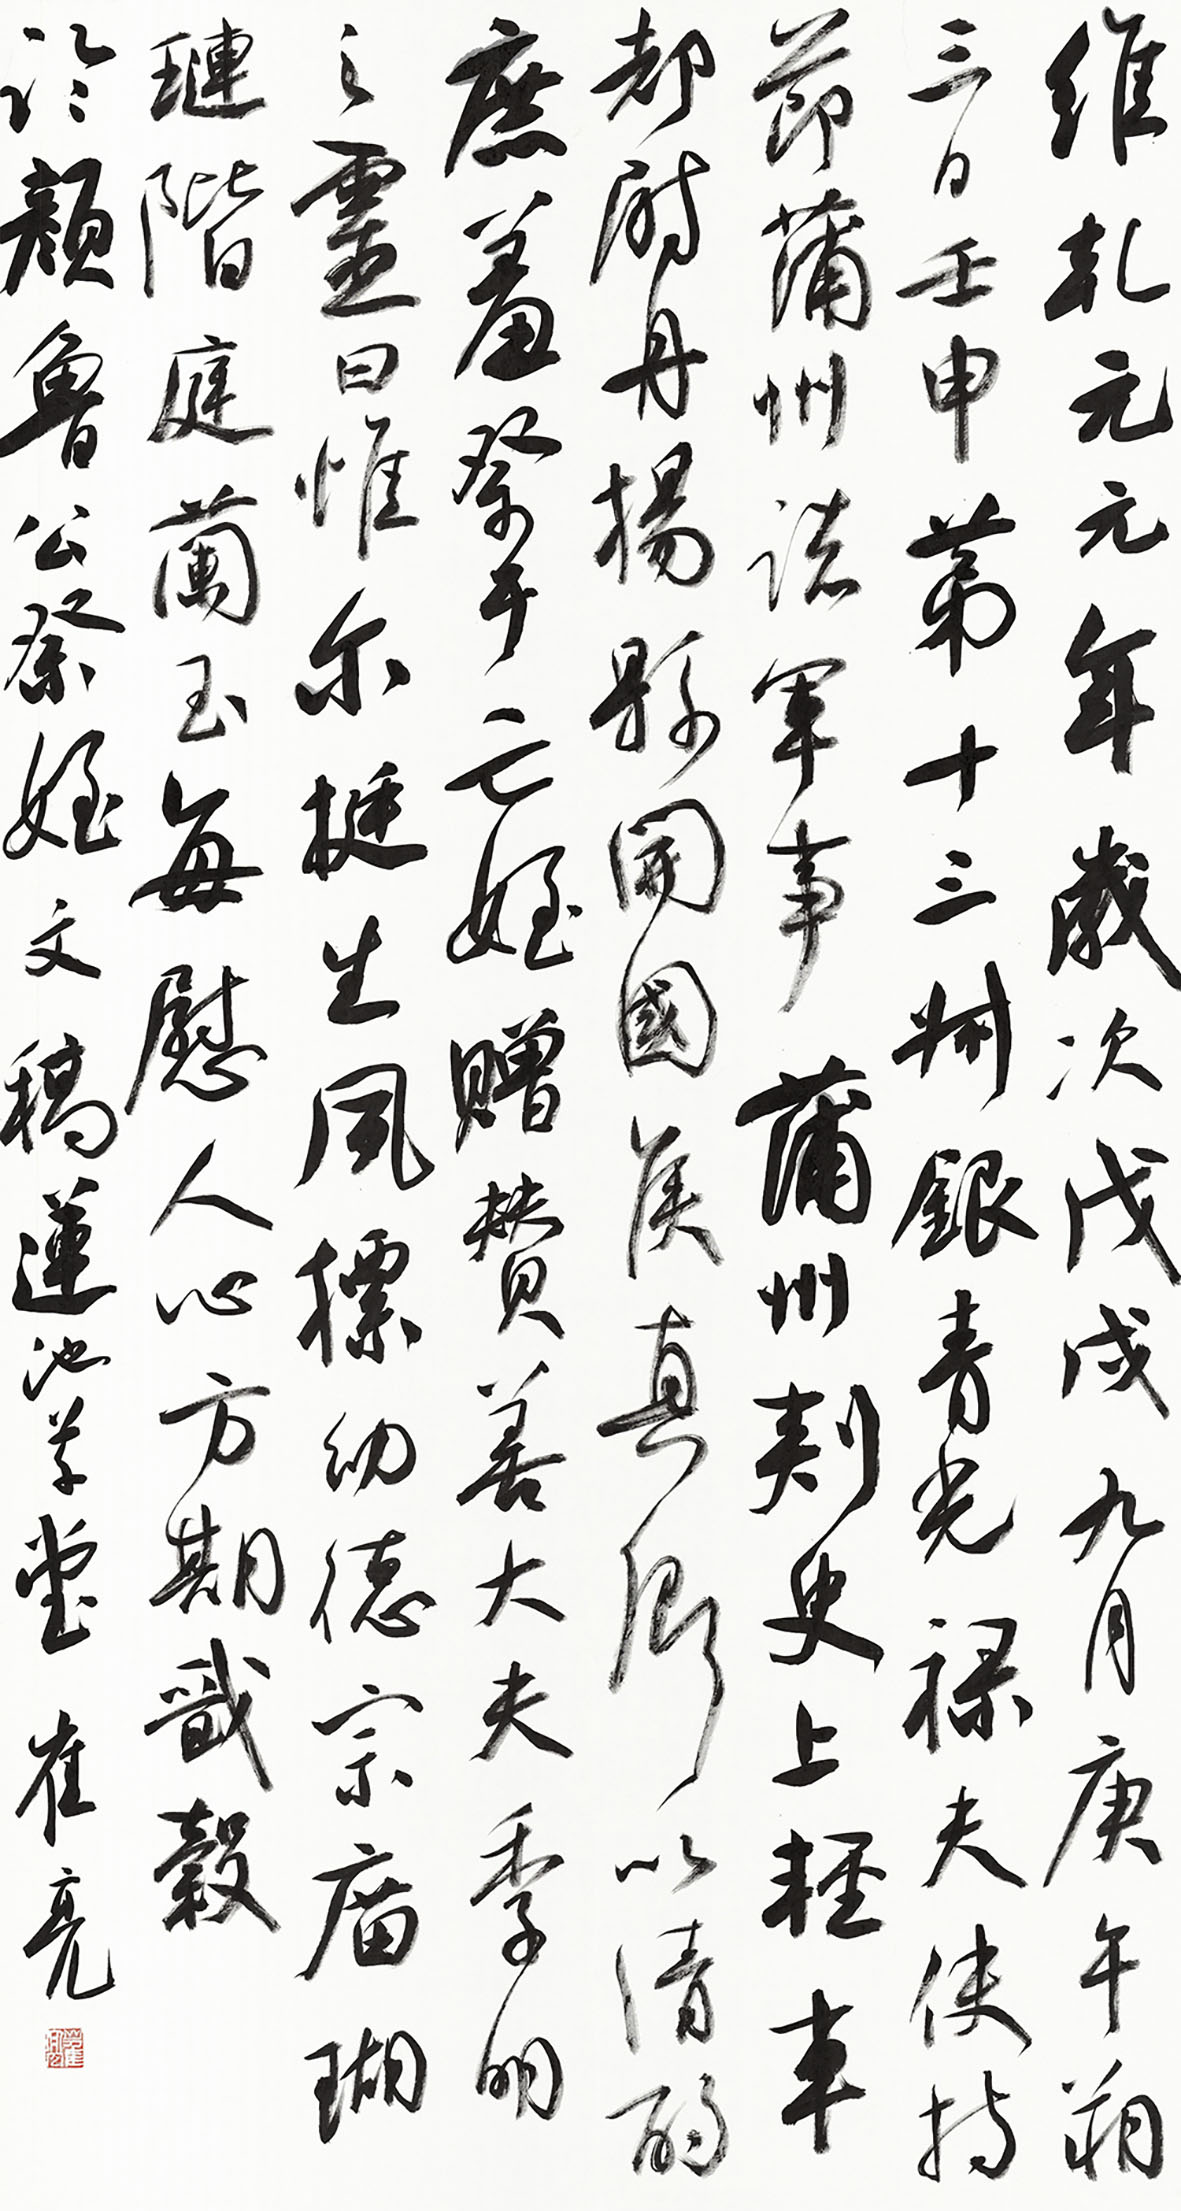 維乾元元年歲次戊戌九月庚午朔
三日壬申第十三叔銀青光祿夫使持
節蒲州諸軍事蒲州刺史上輕車
都尉丹揚縣開國侯真卿以清酌
庶羞祭于亡姪贈贊善大夫季明
之靈曰惟尔挺生夙標幼德宗廟瑚
璉階庭蘭玉每慰人心方期戩穀
臨顏魯公祭姪文稿蓮池草堂崔亮